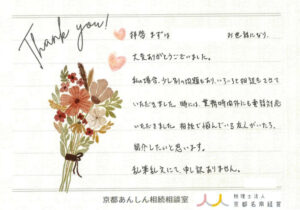 Thank you!
拝啓 まずは お世話になり、
大変ありがとうございました。
私の場合、少し別の問題もあり、いろいろと相談もさせて
いただきました。時には、業務時間外にも電話対応
いただきました。相続で悩んでいる友人がいたら、
紹介したいと思います。
乱筆乱文にて、申し訳ありません。
京都あんしん相続相談室
税理士法人
京都名南経営